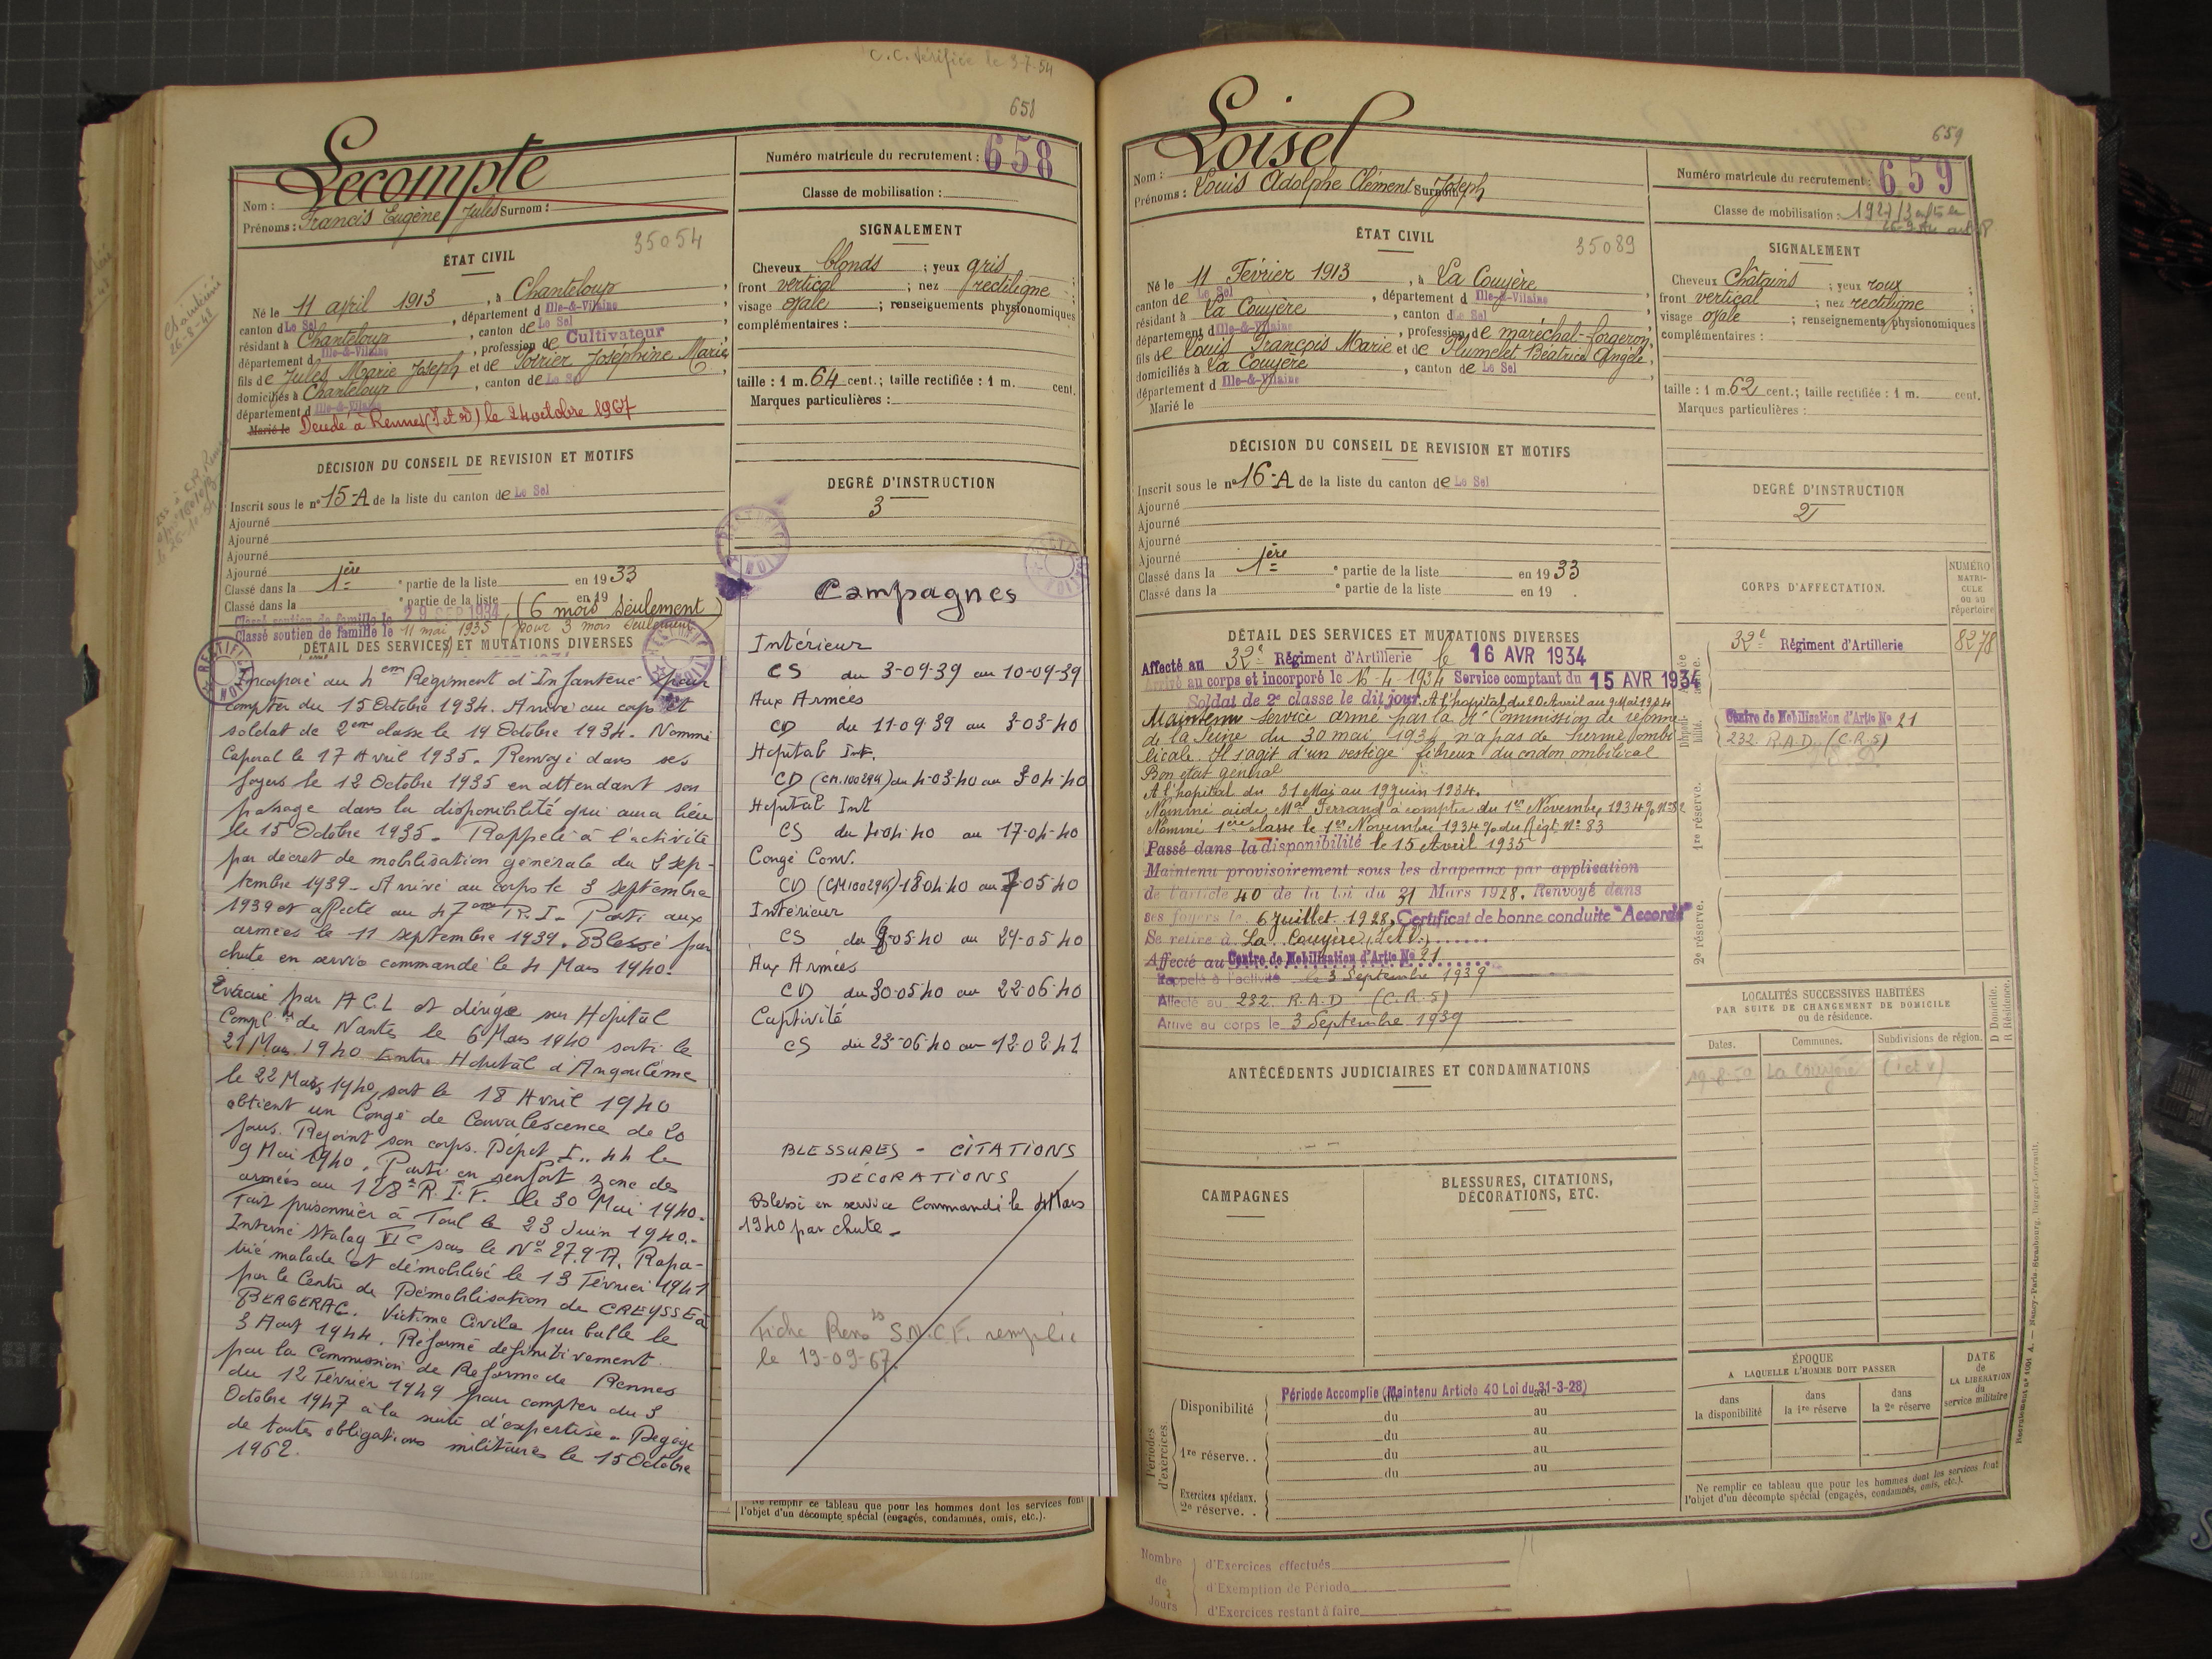 C.C. Vérifiée le 3-7-54
658
Lecompte
Nom :
Prénoms : Francis Eugène Jules Surnom :
Numéro matricule du recrutement : 658
Classe de mobilisation :
35054
ÉTAT CIVIL
Né le 11 avril 1913, à Chanteloup,
canton de Le Sel, département d Ille-&-Vilaine
résidant à Chanteloup, canton de Le Sel
département d Ille-&-Vilaine, profession de Cultivateur
fils de Jules Marie Joseph et de Poirier Joséphine Marie
domiciliés à Chanteloup, canton de Le Sel,
département d Ille-&-Vilaine
Marié le Décédé à Rennes (I et V) le 24 octobre 1967
SIGNALEMENT
Cheveux blonds ; yeux gris ;
front vertical ; nez rectiligne
visage ovale ; renseignements physionomiques
complémentaires :
taille : 1 m. 64 cent.; taille rectifiée : 1 m. cent.
Marques particulières :
DÉCISION DU CONSEIL DE REVISION ET MOTIFS
Inscrit sous le n° 15-A de la liste du canton de Le Sel
Ajourné
Ajourné
Ajourné
Ajourné
Classé dans la 1ère partie de la liste en 1933
Classé dans la partie de la liste en 19
Classé soutien de famille le 29 SEP 1934 (6 mois seulement)
Classé soutien de famille le 11 mai 1935 (pour 3 mois seulement)
DEGRÉ D'INSTRUCTION
3
DÉTAIL DES SERVICES ET MUTATIONS DIVERSES
Incorporé au 4eme Régiment d'Infanterie pour
compter du 15 Octobre 1934. Arrivé au corps et
soldat de 2eme classe le 19 Octobre 1934. Nommé
Caporal le 17 Avril 1935. Renvoyé dans ses
foyers le 12 Octobre 1935 en attendant son
passage dans la disponibilité qui aura lieu
le 15 Octobre 1935. Rappelé à l'activité
par décret de mobilisation générale du 2 sep-
tembre 1939. Arrivé au corps le 3 septembre
1939 et affecté au 47eme R.I. Parti aux
armées le 11 septembre 1939. Blessé par
chute en service commandé le 4 Mars 1940.
Evacué par A.C.L et dirigé sur Hôpital
Compl re de Nantes le 6 Mars 1940 sorti le
21 Mars 1940 Entre Hôpital d'Angoulème
le 22 Mars 1940, sort le 18 Avril 1940
obtient un Congé de Convalescence de 20
jours. Rejoint son corps. Dépôt I.. 44 le
9 Mai 1940. Parti en renfort zone des
armées au 128e R.I.F. le 30 Mai 1940.
Fait prisonnier à Toul le 23 Juin 1940.
Interné Stalag VI C sous le No 27.917. Rapa-
trié malade et démobilisé le 13 Février 1941
par le Centre de Démobilisation de CREYSSE à
BERGERAC. Victime Civile par balle le
3 Aout 1944. Réformé définitivement
par la Commission de Réforme de Rennes
du 12 Février 1949 pour compter du 3
Octobre 1947 à la suite d'expertise. Dégagé
de toutes obligations militaires le 15 Octobre
1962.
Campagnes
Intérieur
CS du 3-09-39 au 10-09-39
Aux Armées
CD du 11-09-39 au 3-03-40
Hopital Int.
CD (CM.100294) du 4-03-40 au 3-04-40
Hopital Int
CS du 4-04-40 au 17-04-40
Congé Conv.
CD (CM100294) 18-04-40 au 7-05-40
Intérieur
CS du 8-05-40 au 29-05-40
Aux Armées
CD du 30-05-40 au 22-06-40
Captivité
CS du 23-06-40 au 12-02-41
BLESSURES - CITATIONS
DÉCORATIONS
Blessé en service Commandé le 4 Mars
1940 par chute.
Fiche Rens ts S.N.C.F. remplie
le 19-09-67.
Ne remplir ce tableau que pour les hommes dont les services font
l'objet d'un décompte spécial (engagés, condamnés, omis, etc.).
659
Loisel
Nom :
Prénoms : Louis Adolphe Clément Joseph Surnom
Numéro matricule du recrutement : 659
Classe de mobilisation : 1927/3
35089
ÉTAT CIVIL
Né le 11 Février 1913, à La Couyère
canton de Le Sel, département d Ille-&-Vilaine
résidant à La Couyère, canton de Le Sel
département d Ille-&-Vilaine, profession de maréchal-forgeron,
fils de Louis François Marie et de Plumelet Béatrice Angèle,
domiciliés à La Couyère, canton de Le Sel
département d Ille-&-Vilaine
Marié le
SIGNALEMENT
Cheveux Châtains ; yeux roux ;
front vertical ; nez rectiligne
visage ovale ; renseignements physionomiques
complémentaires :
taille : 1 m. 62 cent.; taille rectifiée : 1 m. cent.
Marques particulières :
DÉCISION DU CONSEIL DE REVISION ET MOTIFS
Inscrit sous le n° 16-A de la liste du canton de Le Sel
Ajourné
Ajourné
Ajourné
Ajourné
Classé dans la 1ère partie de la liste en 1933
Classé dans la partie de la liste en 19 .
DEGRÉ D'INSTRUCTION
2
CORPS D'AFFECTATION.
NUMÉRO MATRI-CULE ou au répertoire
32e Régiment d'Artillerie 8278
Centre de Mobilisation d'Artie No 21
232 R.A.D. (C.R.5)
1re réserve.
2e réserve.
DÉTAIL DES SERVICES ET MUTATIONS DIVERSES
Affecté au 32e Régiment d'Artillerie le 16 AVR 1934
Arrivé au corps et incorporé le 16-4-1934 Service comptant du 15 AVR 1934
Soldat de 2e classe le dit jour. A l'hopital du 20 Avril au 9 Mai 1934
Maintenu service armé par la 4e Commission de réforme
de la Seine du 30 mai 1934 n'a pas de hernie ombi
licale. Il s'agit d'un vestige fibreux du cordon ombilical
Bon état général
A l'hopital du 31 Mai au 19 juin 1934.
Nommé aide Mal Ferrand à compter du 1er Novembre 1934 % n° 82
Nommé 1ère classe le 1er Novembre 1934 % du Régt N° 83
Passé dans la disponibilité le 15 Avril 1935
Maintenu provisoirement sous les drapeaux par application
de l'article 40 de la loi du 31 Mars 1928. Renvoyé dans
ses foyers le 6 Juillet 1928. Certificat de bonne conduite "Accordé"
Se retire à La Couyère, (I et V.)
Affecté au Centre de Mobilisation d'Artie No 21
Rappelé à l'activité le 3 Septembre 1939
Affecté au 232 R.A.D (C.R.5)
Arrivé au corps le 3 Septembre 1939
ANTÉCÉDENTS JUDICIAIRES ET CONDAMNATIONS
LOCALITÉS SUCCESSIVES HABITÉES
PAR SUITE DE CHANGEMENT DE DOMICILE
ou de résidence.
D Domicile.
R Résidence.
Dates. Communes. Subdivisions de région.
19-8-50 La Couyère (I et V)
CAMPAGNES
BLESSURES, CITATIONS,
DÉCORATIONS, ETC.
Périodes d'exercices.
Disponibilité Période Accomplie (Maintenu Article 40 Loi du 31-3-28)
du au
du au
1re réserve. . du au
du au
Exercices spéciaux.
2e réserve. .
ÉPOQUE
A LAQUELLE L'HOMME DOIT PASSER
dans la disponibilité
dans la 1re réserve
dans la 2e réserve
DATE de LA LIBÉRATION du service militaire
Ne remplir ce tableau que pour les hommes dont les services font
l'objet d'un décompte spécial (engagés, condamnés, omis, etc.).
Nombre de Jours
d'Exercices effectués
d'Exemption de Période
d'Exercices restant à faire